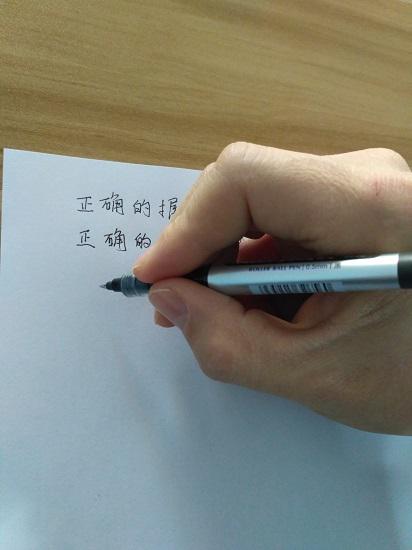 正确的握
正确的
ROLLER BALL PEN 0.5mm 黑